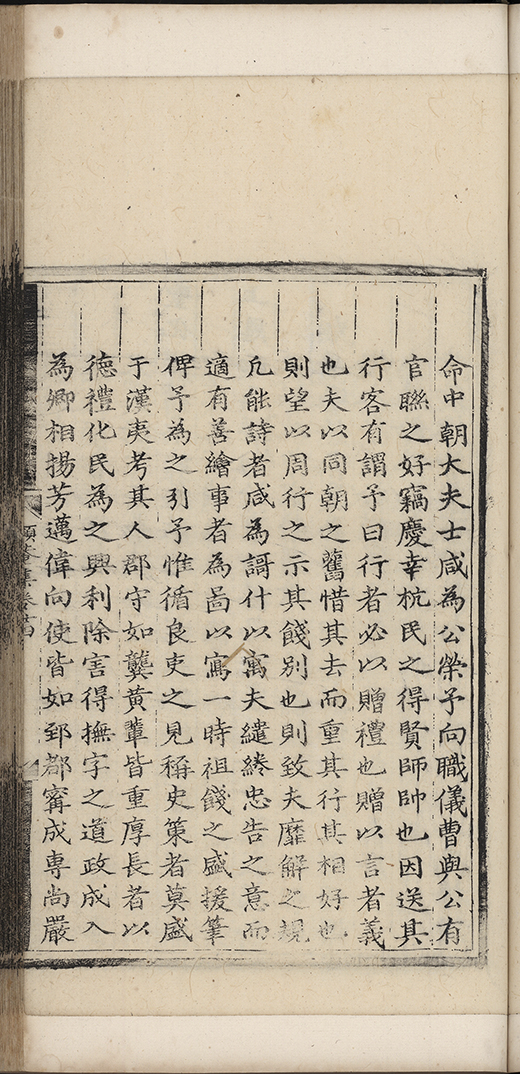 命中朝大夫士咸為公榮予向職儀曹與公有
官聯之好竊慶幸杭民之得賢師帥也因送其
行客有謂予曰行者必以贈禮也贈以言者義
也夫以同朝之舊惜其去而重其行其相好也
則望以周行之示其餞別也則致夫靡解之規
凡能詩者咸為謌什以寓夫繾綣忠告之意而
適有善繪事者為啚以寓一時祖餞之盛援筆
俾予為之引予惟循良吏之見稱史策者莫盛
于漢夷考其人郡守如龔黃輩皆重厚長者以
德禮化民為之興利除害得撫字之道政成入
為卿相揚芳邁偉向使皆如郅都甯成專尚嚴
頤菴集卷